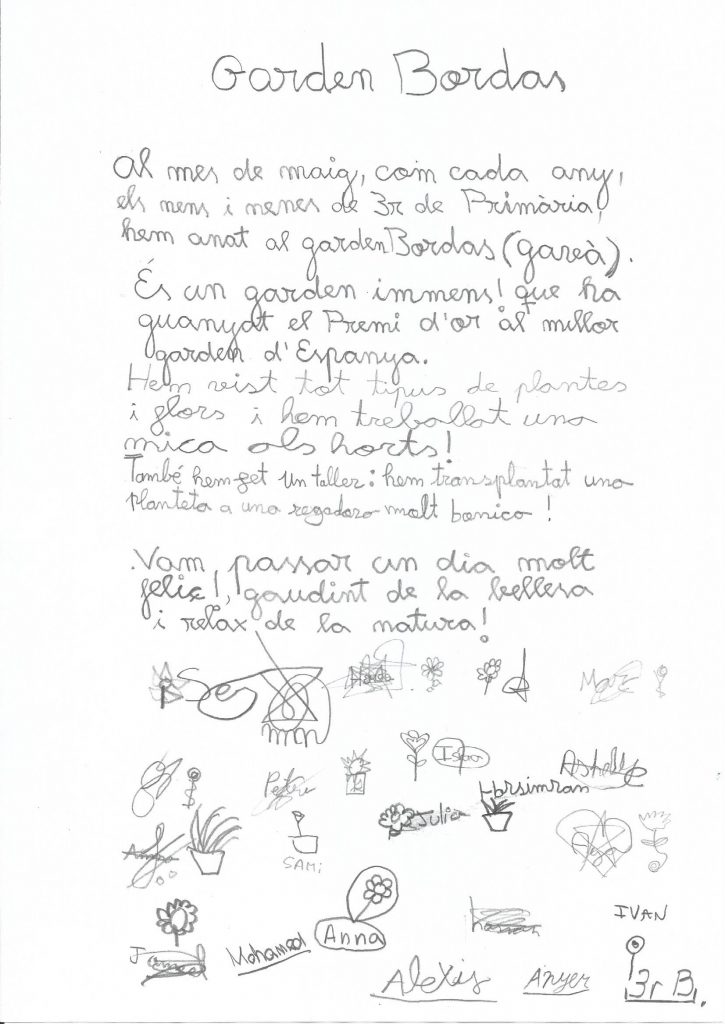 Garden Bordas
Al mes de maig, com cada any,
els nens i nenes de 3r de Primària,
hem anat al garden Bordas (gavà).
És un garden immens! que ha
guanyat el Premi d'or al millor
garden d'Espanya.
Hem vist tot tipus de plantes
i flors i hem treballat una
mica als horts!
També hem fet un taller: hem transplantat una
planteta a una regadora molt bonica!
Vam passar un dia molt
feliç!, gaudint de la bellesa
i relax de la natura!
Marc
Harsimran
Julia
SAMI
IVAN
Mohamed
Anna
Alexis
Anyer
3r B.